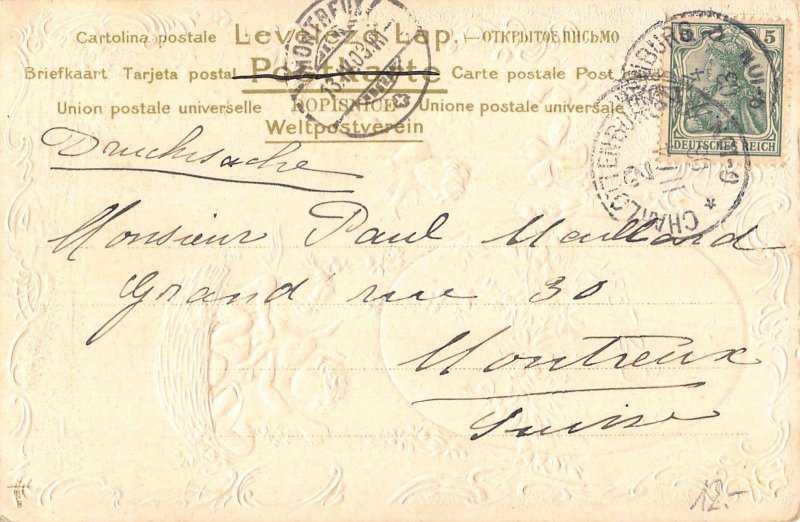 Cartolina postale Levelező-Lap. — ОТКРЫТОЕ ПИСЬМО
Briefkaart Tarjeta postal Postkarte Carte postale Post
Union postale universelle DOPISNICE Unione postale universale
Weltpostverein
MONTREUX
5
DEUTSCHES REICH
CHARLOTTENBURG
Drucksache
Monsieur Paul Maillard
Grand rue 30
Montreux
Suisse
12.-